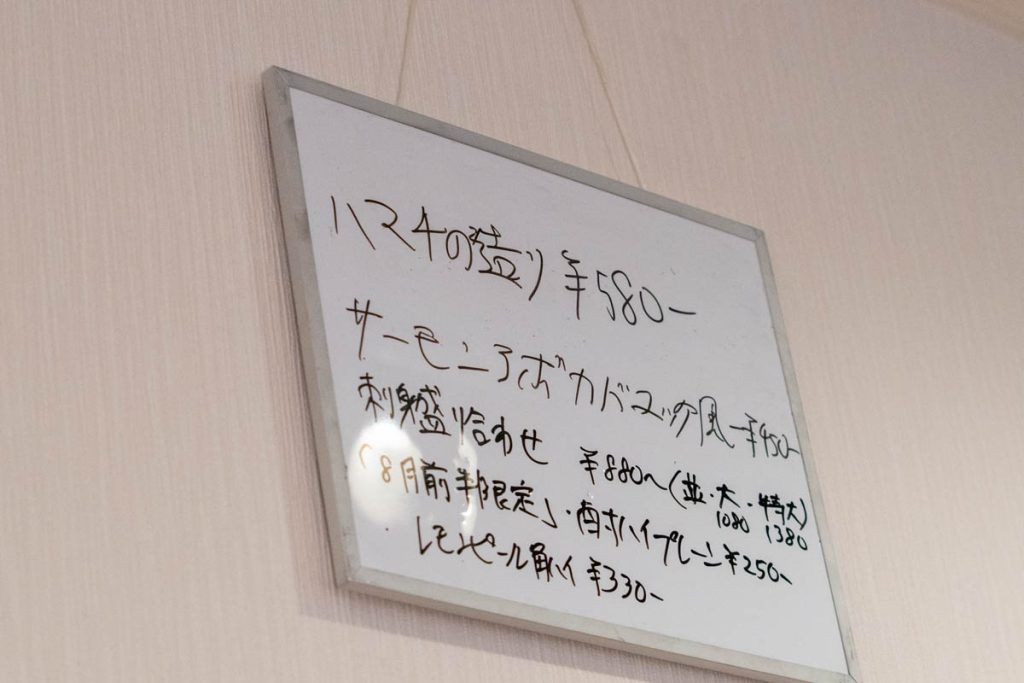 ハマチの造り ¥580-
サーモンアボカドユッケ風 ¥450-
刺身盛り合わせ ¥880~(並・大・特大)
1080 1380
「8月前半限定」・酎ハイプレーン¥250-
レモンピール酎ハイ ¥330-